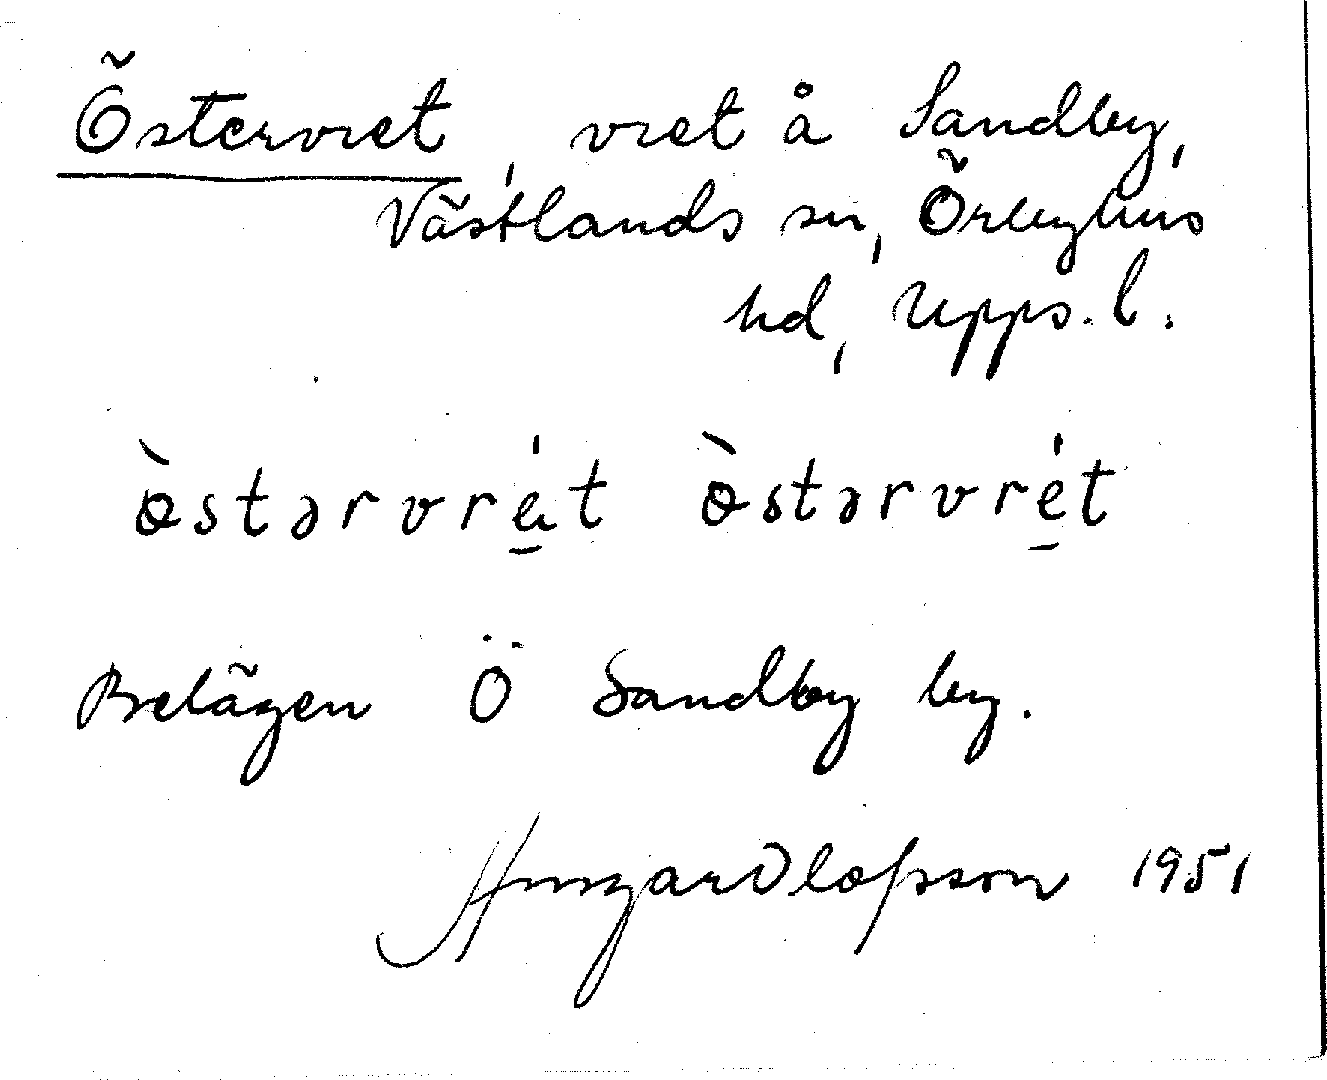 Östervret, vret å Sandby,
Västlands sn, Örbyhus
hd, Upps. l.
ö̀stərvrét ö̀stərvrét
Belägen Ö Sandby by.
Ansgar Olofsson 1951